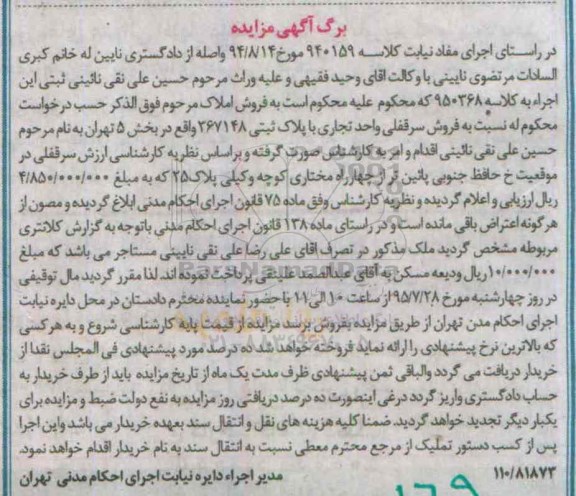 برگ آگهی مزایده
در راستای اجرای مفاد نیابت کلاسه ۹۴۰۱۵۹ مورخ ۹۴/۸/۱۴ واصله از دادگستری نایین له خانم کبری
السادات مرتضوی نایینی با وکالت اقای وحید فقیهی و علیه وراث مرحوم حسین علی نقی نائینی ثبتی این
اجراء به کلاسه ۹۵۰۳۶۸ که محکوم علیه محکوم است به فروش املاک مرحوم فوق الذکر حسب درخواست
محکوم له نسبت به فروش سرقفلی واحد تجاری با پلاک ثبتی ۳۶۷۱۴۸ واقع در بخش ۵ تهران به نام مرحوم
حسین علی نقی نائینی اقدام و امر به کارشناس صورت گرفته و براساس نظریه کارشناسی ارزش سرقفلی در
موقعیت خ حافظ جنوبی پائین تر از چهارراه مختاری کوچه وکیلی پلاک ۲۵ که به مبلغ ۴/۸۵۰/۰۰۰/۰۰۰
ریال ارزیابی و اعلام گردیده و نظریه کارشناس وفق ماده ۷۵ قانون اجرای احکام مدنی ابلاغ گردیده و مصون از
هرگونه اعتراض باقی مانده است و در راستای ماده ۱۳۸ قانون اجرای احکام مدنی باتوجه به گزارش کلانتری
مربوطه مشخص گردید ملک مذکور در تصرف اقای علی رضا علی نقی نایینی مستاجر می باشد که مبلغ
۱۰/۰۰۰/۰۰۰ ریال ودیعه مسکن به آقای عبدالصمد علیقی پرداخت نموده اند. لذا مقرر گردید مال توقیفی
در روز چهارشنبه مورخ ۹۵/۷/۲۸ از ساعت ۱۰ الی ۱۱ با حضور نماینده محترم دادستان در محل دایره نیابت
اجرای احکام مدن تهران از طریق مزایده بفروش برسد مزایده از قیمت پایه کارشناسی شروع و به هر کسی
که بالاترین نرخ پیشنهادی را ارائه نماید فروخته خواهد شد ده درصد مورد پیشنهادی فی المجلس نقدا از
خریدار دریافت می گردد والباقی ثمن پیشنهادی ظرف مدت یک ماه از تاریخ مزایده باید از طرف خریدار به
حساب دادگستری واریز گردد در غی اینصورت ده درصد دریافتی روز مزایده به نفع دولت ضبط و مزایده برای
یکبار دیگر تجدید خواهد گردید. ضمنا کلیه هزینه های نقل و انتقال سند بعهده خریدار می باشد و این اجرا
پس از کسب دستور تملیک از مرجع محترم معطی نسبت به انتقال سند به نام خریدار اقدام خواهد نمود.
۱۱۰/۸۱۸۷۳ مدیر اجراء دایره نیابت اجرای احکام مدنی تهران
۱۶۹